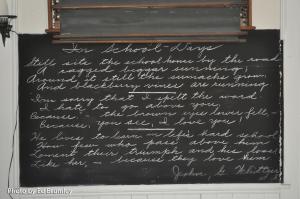 In School-Days
Still sits the school house by the road
A ragged beggar sunning;
Around it still the sumachs grow,
And blackberry vines are running
I'm sorry that I spelt the word
I hate to go above you,
Because, the brown eyes lower fell-
Because, you see, I love you!
He lives to learn in life's hard school,
How few who pass above him
Lament their triumph and his loss
Like her - because they love him
John G. Whittier
Photo by Ed Brumley